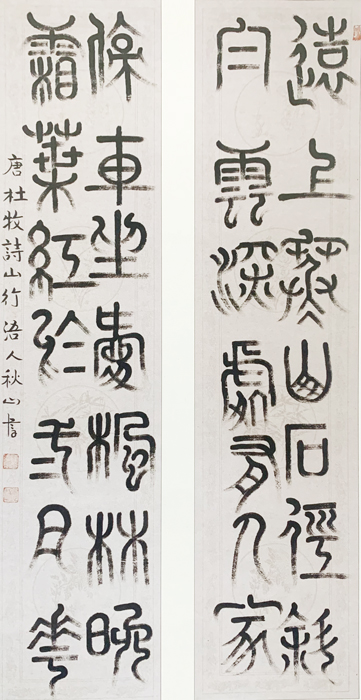 遠上寒山石徑斜
白雲深處有人家
停車坐愛楓林晚
霜葉紅於二月花
唐杜牧詩山行浯人秋山書